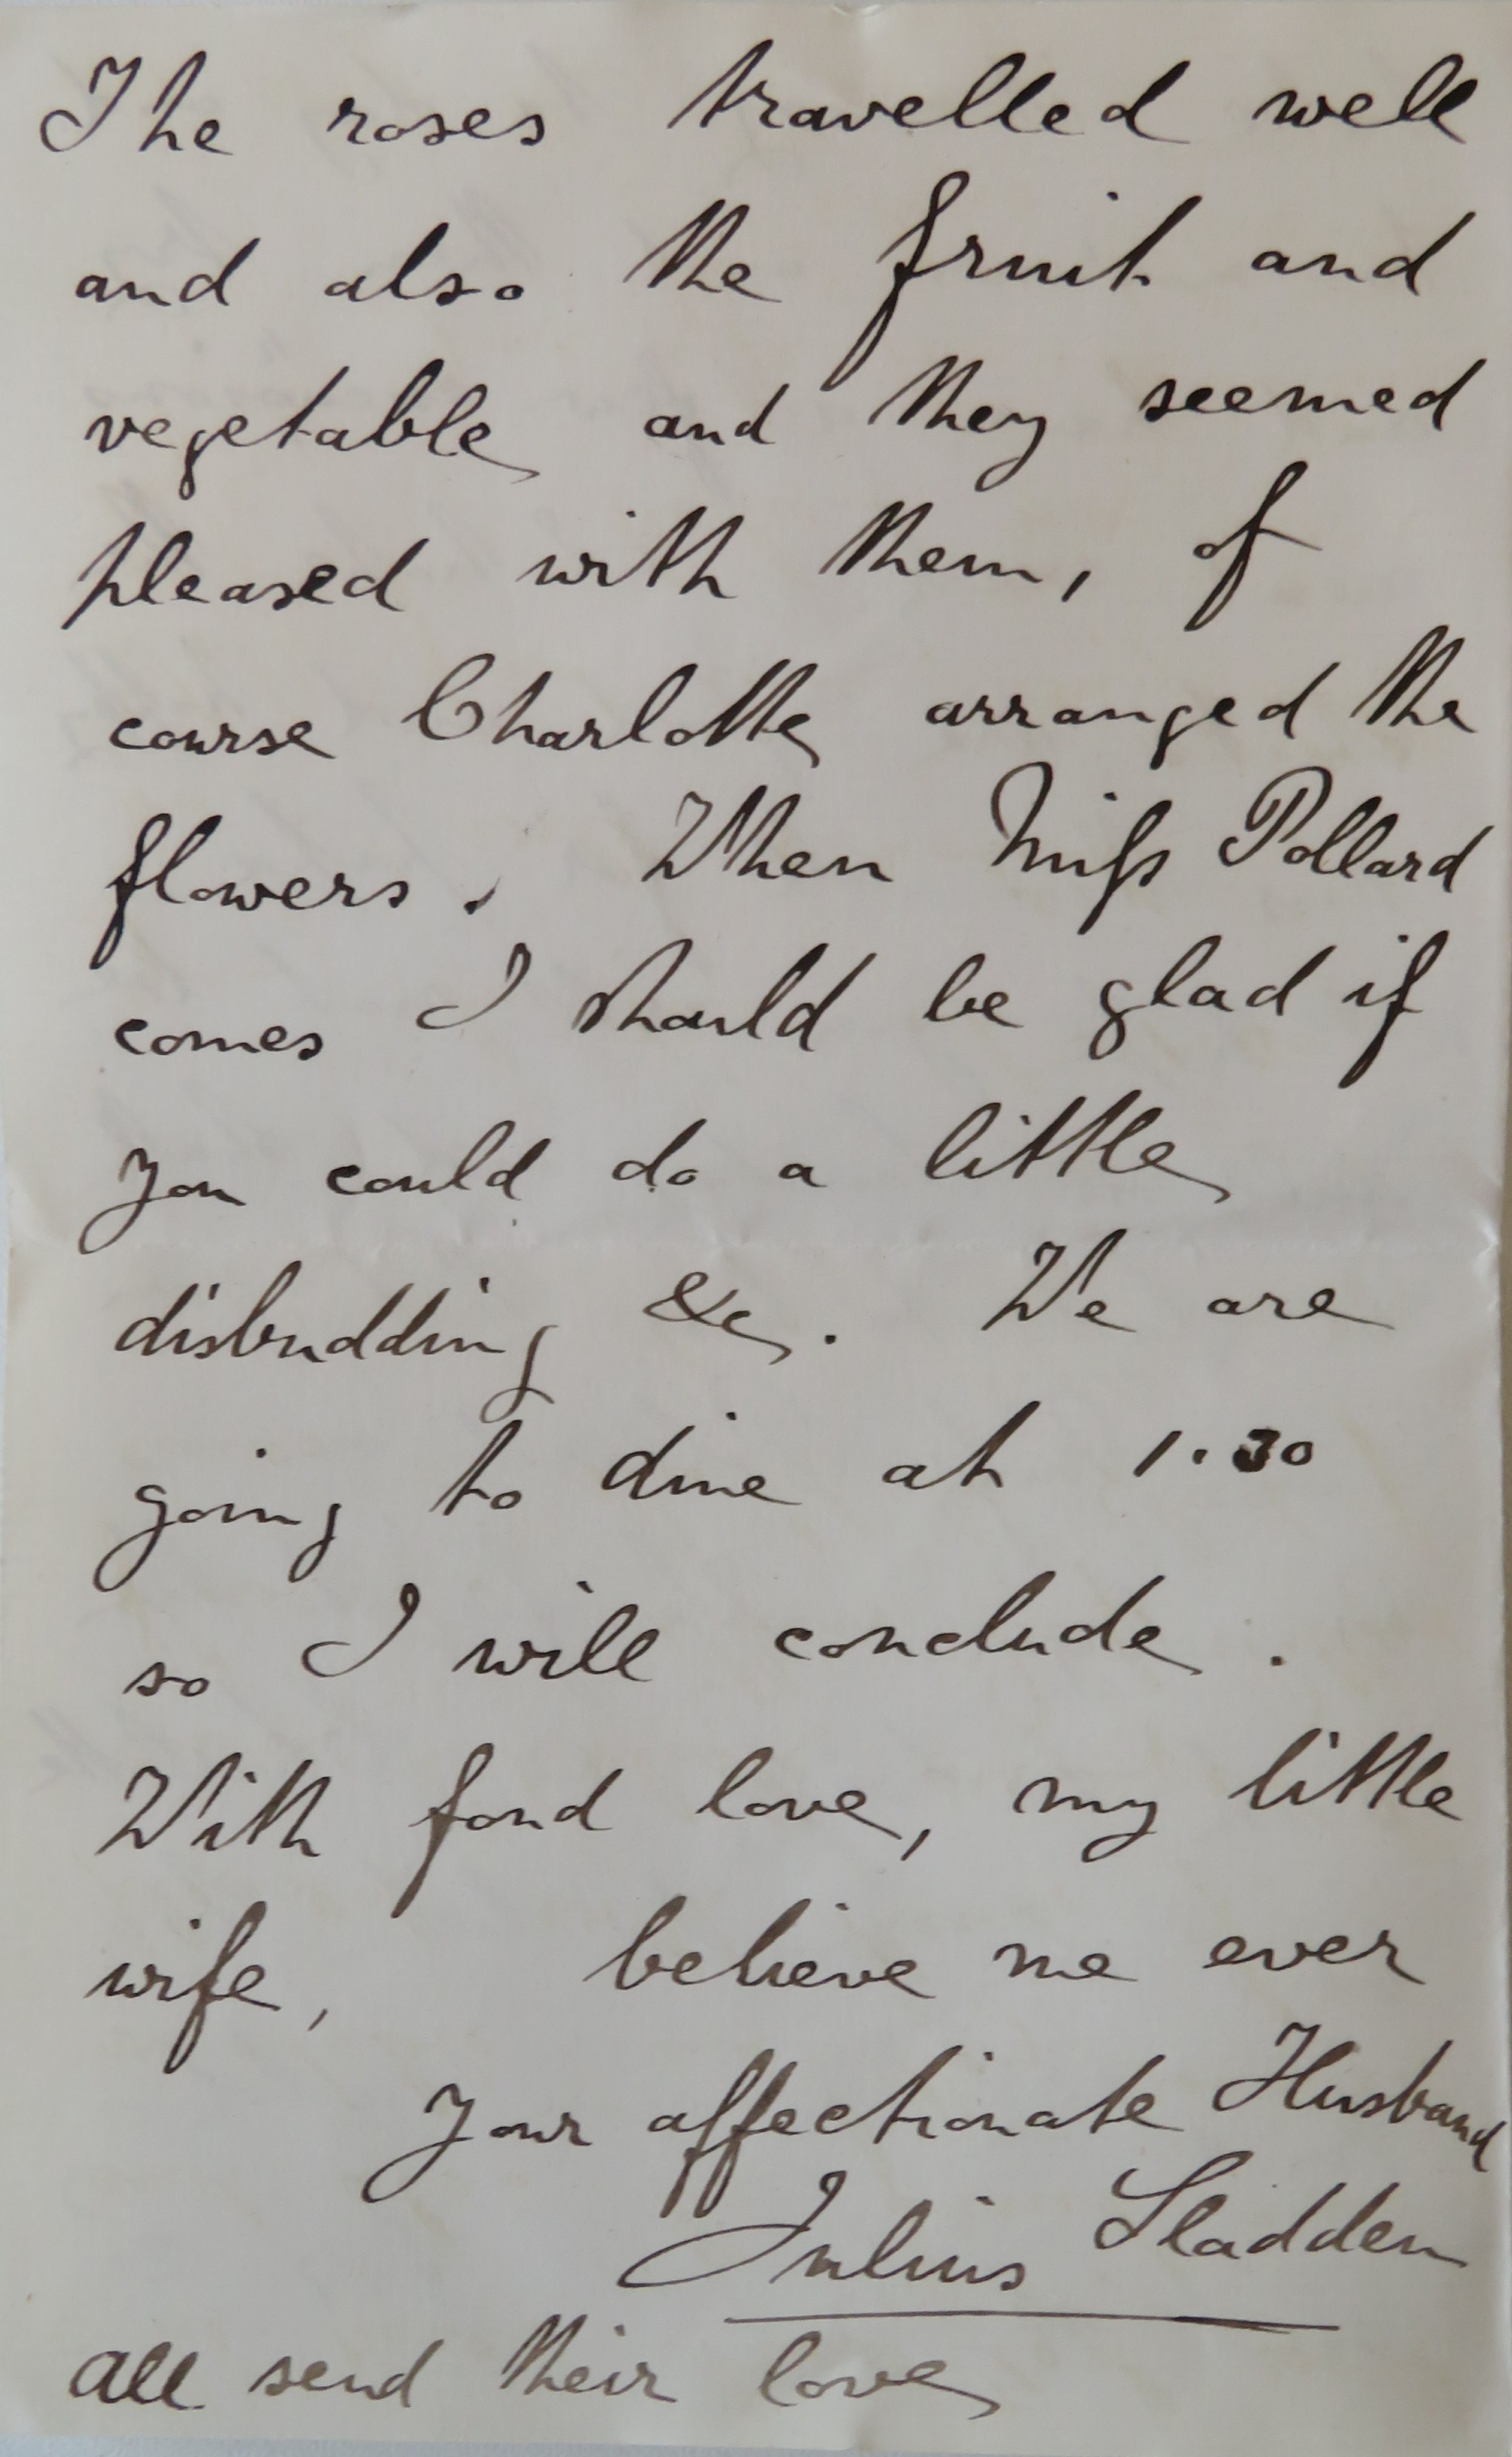 The roses travelled well
and also the fruit and
vegetable and they seemed
pleased with them, of
course Charlotte arranged the
flowers. When Miss Pollard
comes I should be glad if
you could do a little
disbudding &c. We are
going to dine at 1.30
so I will conclude.
With fond love, my little
wife, believe me ever
Your affectionate Husband
Julius Sladden
All send their love